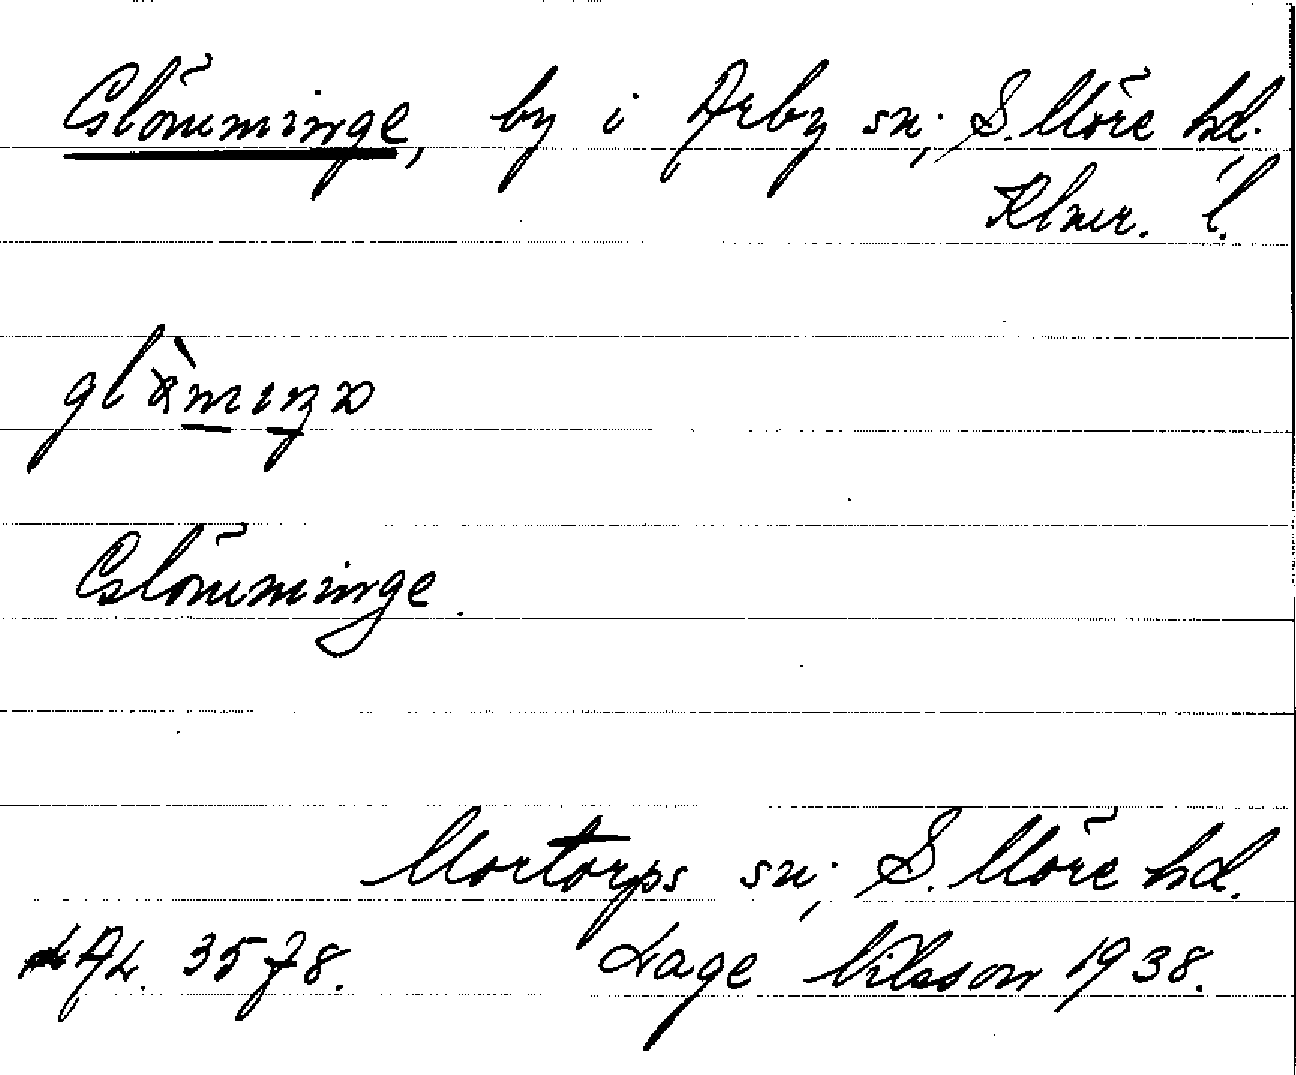 Glömminge, by i Arby sn; S. Möre hd.
Klmr. l.
Glömminge.
Mortorps sn; S. Möre hd.
LAL. 3578. Lage Nilsson 1938.